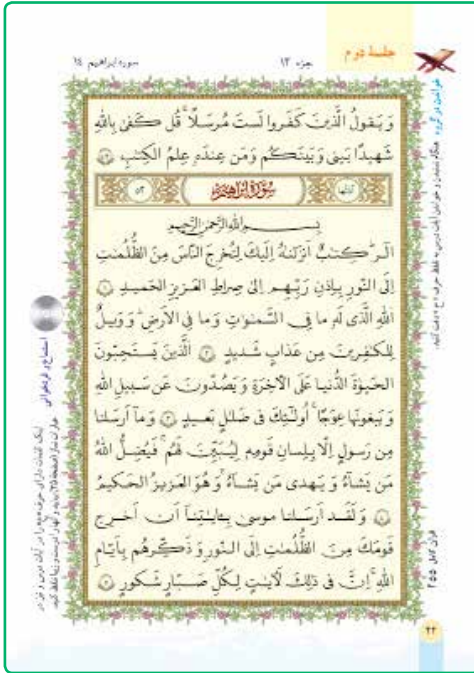 جلسه دوم
سوره ابراهیم ١٤
جزء ١٣
وَ يَقولُ الَّذينَ كَفَروا لَستَ مُرسَلًا ۚ قُل كَفىٰ بِاللّٰهِ
شَهيدًا بَيني وَ بَينَكُم وَ مَن عِندَهٗ عِلمُ الكِتٰبِ ٤٣
آياتها سُورَةُ إبراهيم ٥٢
بِسمِ اللّٰهِ الرَّحمٰنِ الرَّحيمِ
الٓرٰ ۚ كِتٰبٌ اَنزَلنٰهُ اِلَيكَ لِتُخرِجَ النّاسَ مِنَ الظُّلُمٰتِ
اِلَى النّورِ بِاِذنِ رَبِّهِم اِلىٰ صِراطِ العَزيزِ الحَميدِ ١
اَللّٰهِ الَّذي لَهٗ ما فِي السَّمٰوٰتِ وَ ما فِي الاَرضِ ۗ وَ وَيلٌ
لِلكٰفِرينَ مِن عَذابٍ شَديدٍ ٢ اَلَّذينَ يَستَحِبّونَ
الحَيٰوةَ الدُّنيا عَلَى الآخِرَةِ وَ يَصُدّونَ عَن سَبيلِ اللّٰهِ
وَ يَبغونَها عِوَجًا ۚ اُولٰٓئِكَ في ضَلٰلٍ بَعيدٍ ٣ وَ مآ اَرسَلنا
مِن رَسولٍ اِلّا بِلِسانِ قَومِهٖ لِيُبَيِّنَ لَهُم ۖ فَيُضِلُّ اللّٰهُ
مَن يَشآءُ وَ يَهدي مَن يَشآءُ ۚ وَ هُوَ العَزيزُ الحَكيمُ
٤ وَ لَقَد اَرسَلنا موسىٰ بِـٔايٰتِنآ اَن اَخرِج
قَومَكَ مِنَ الظُّلُمٰتِ اِلَى النّورِ وَ ذَكِّرهُم بِاَيّامِ
اللّٰهِ ۚ اِنَّ في ذٰلِكَ لَـٔايٰتٍ لِكُلِّ صَبّارٍ شَكورٍ ٥
خواندن در گروه
استماع و فردخوانی
قرآن کامل ٢٥٥
٢٢